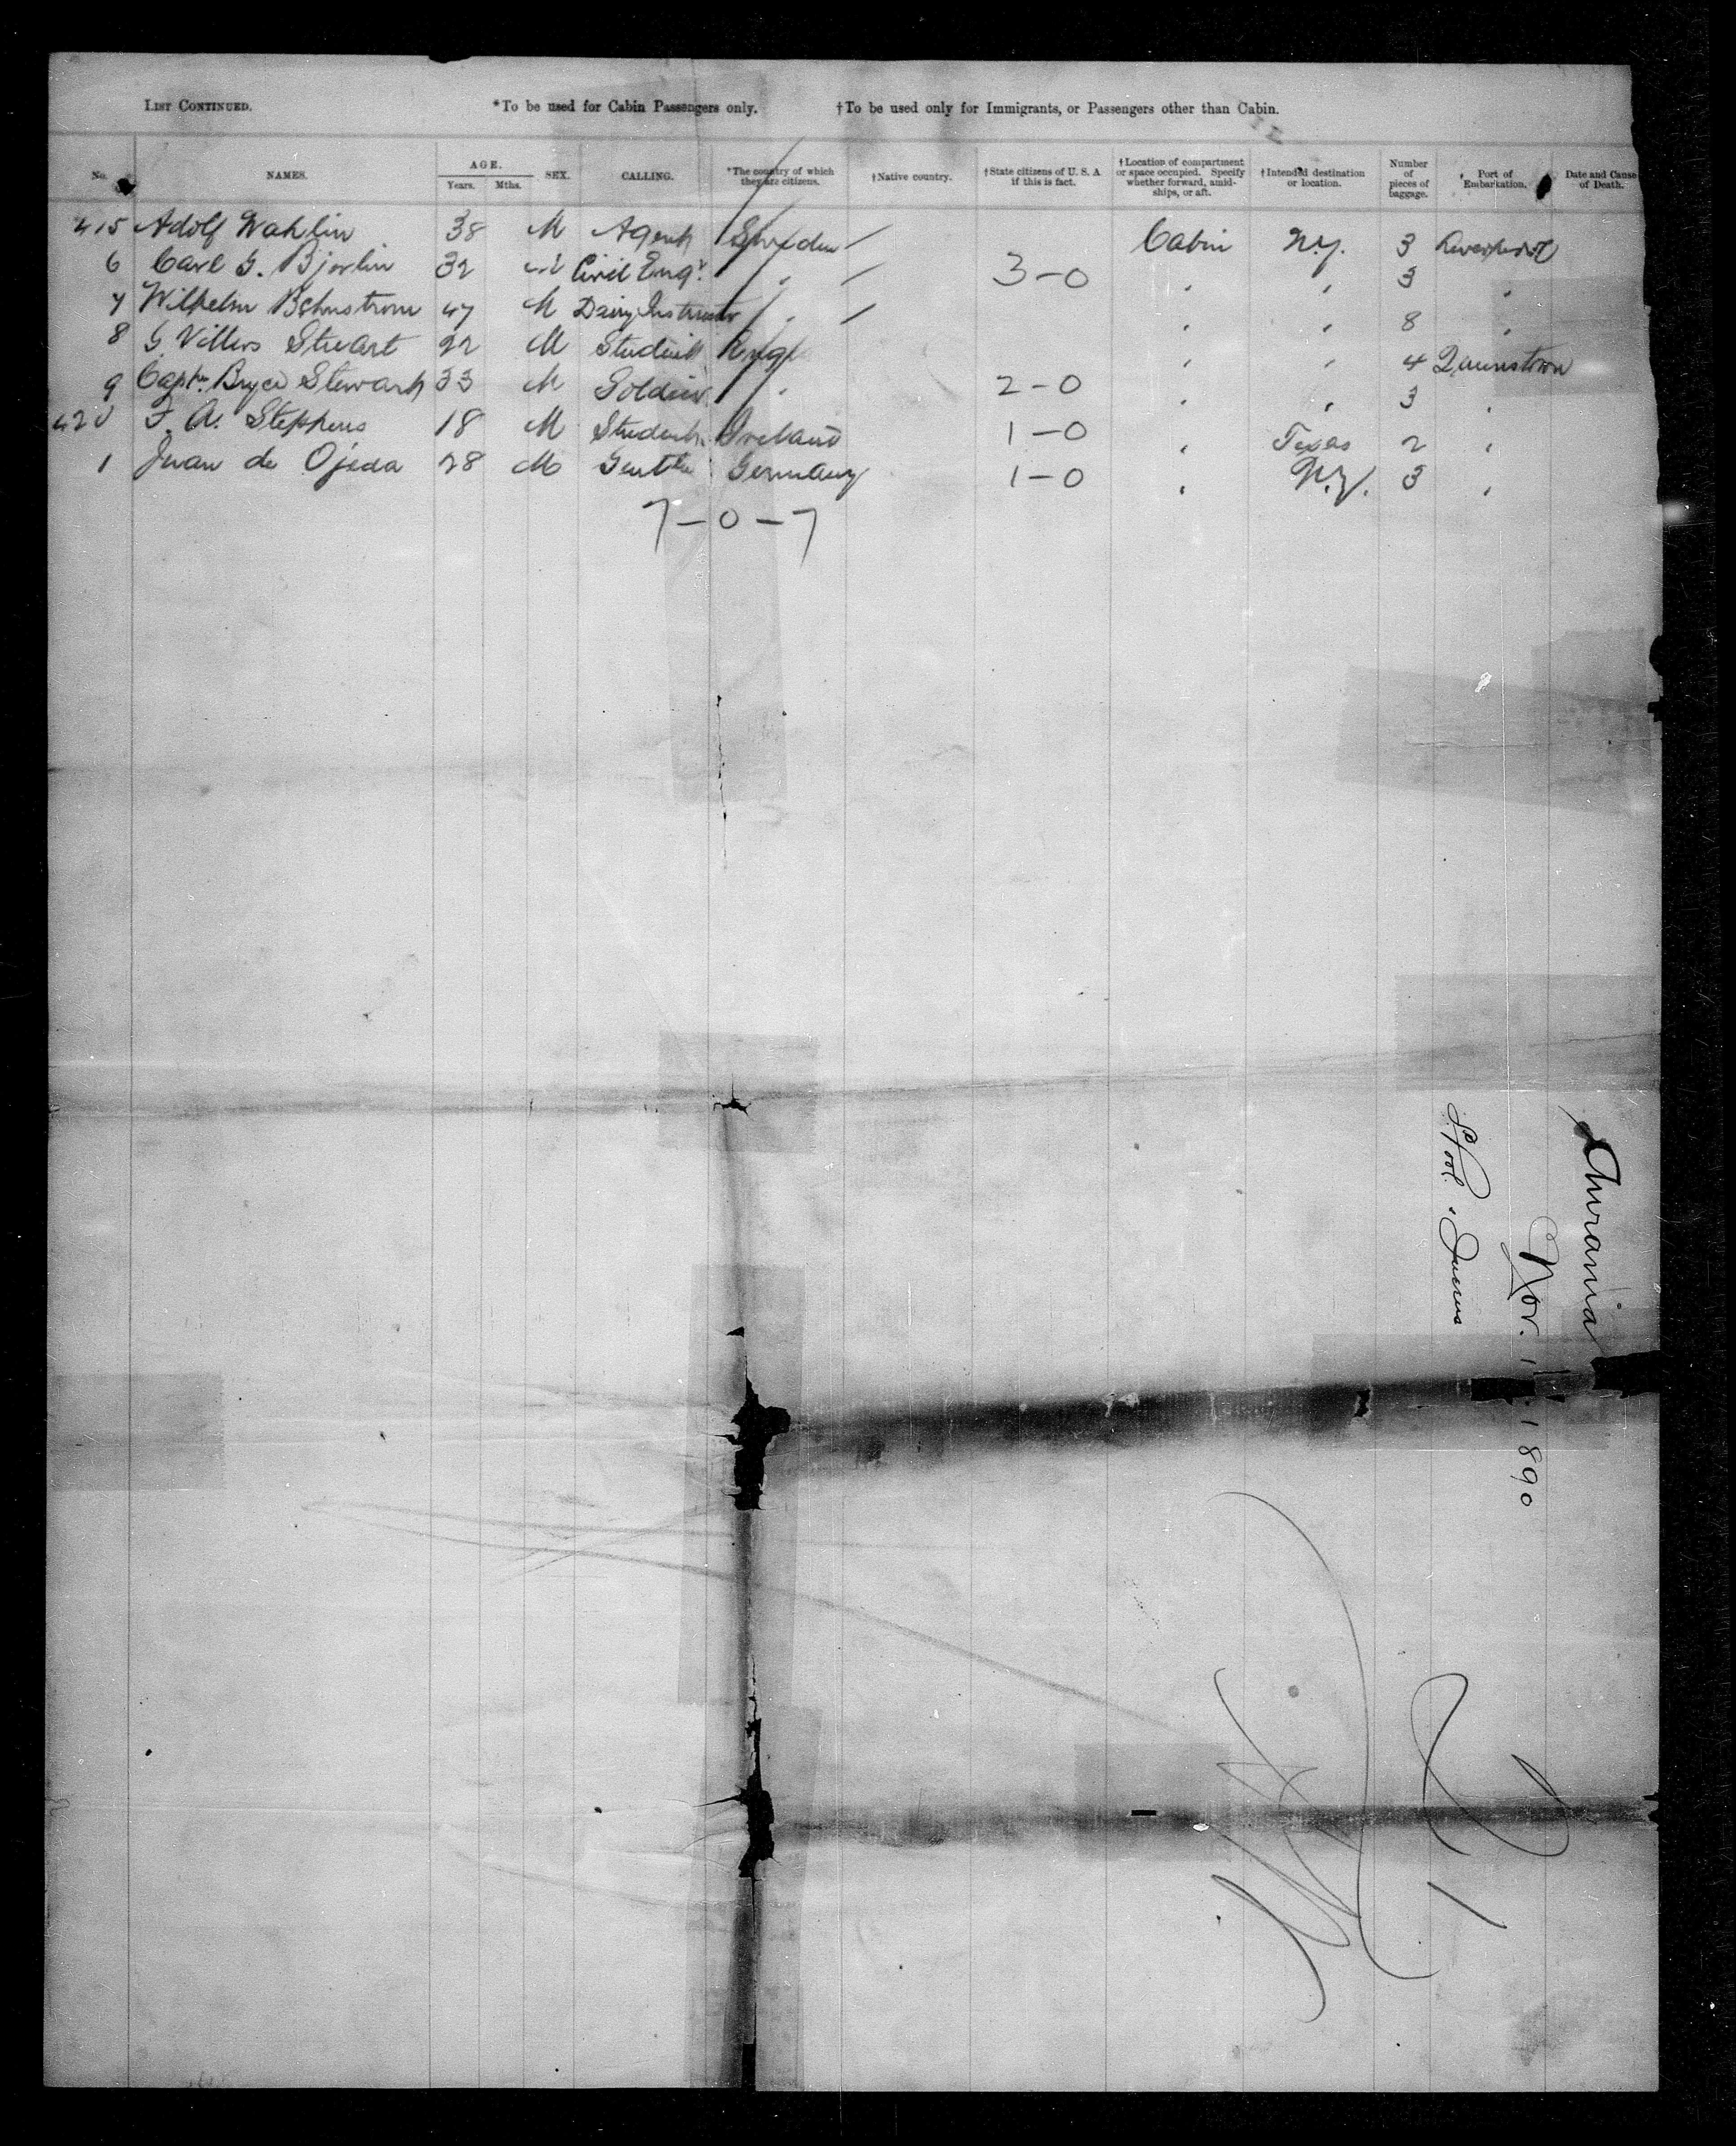 LIST CONTINUED. *To be used for Cabin Passengers only. †To be used only for Immigrants, or Passengers other than Cabin.
No. NAMES. AGE. Years. Mths. SEX. CALLING. *The country of which they are citizens. †Native country. †State citizens of U. S. A if this is fact. †Location of compartment or space occupied. Specify whether forward, amidships, or aft. †Intended destination or location. Number of pieces of baggage. Port of Embarkation. Date and Cause of Death.
415 Adolf Wahlin 38 M Agent Sweden / Cabin N.Y. 3 Liverpool
6 Carl G. Bjorlin 32 M Civil Engr. " / 3-0 " " 3 "
7 Wilhelm 47 M Dairy Instructor " / " " 8 "
8 G Villiers Stuart 22 M Student Engl " " 4 Queenstown
9 Captn. Bryce Stewart 33 M Soldier " 2-0 " " 3 "
420 F. A. Stephens 18 M Student Ireland 1-0 " Texas 2 "
1 Juan de Ojeda 28 M Gentln Germany 1-0 " N.Y. 3 "
7-0-7
Aurania
Nov. 1890
L'pool. Queens